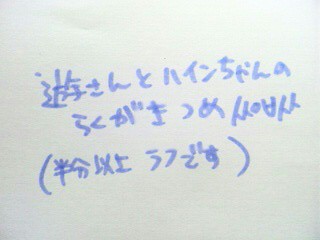 遊さんとハインちゃんの
らくがきつめ
(半分以上 ラフです)